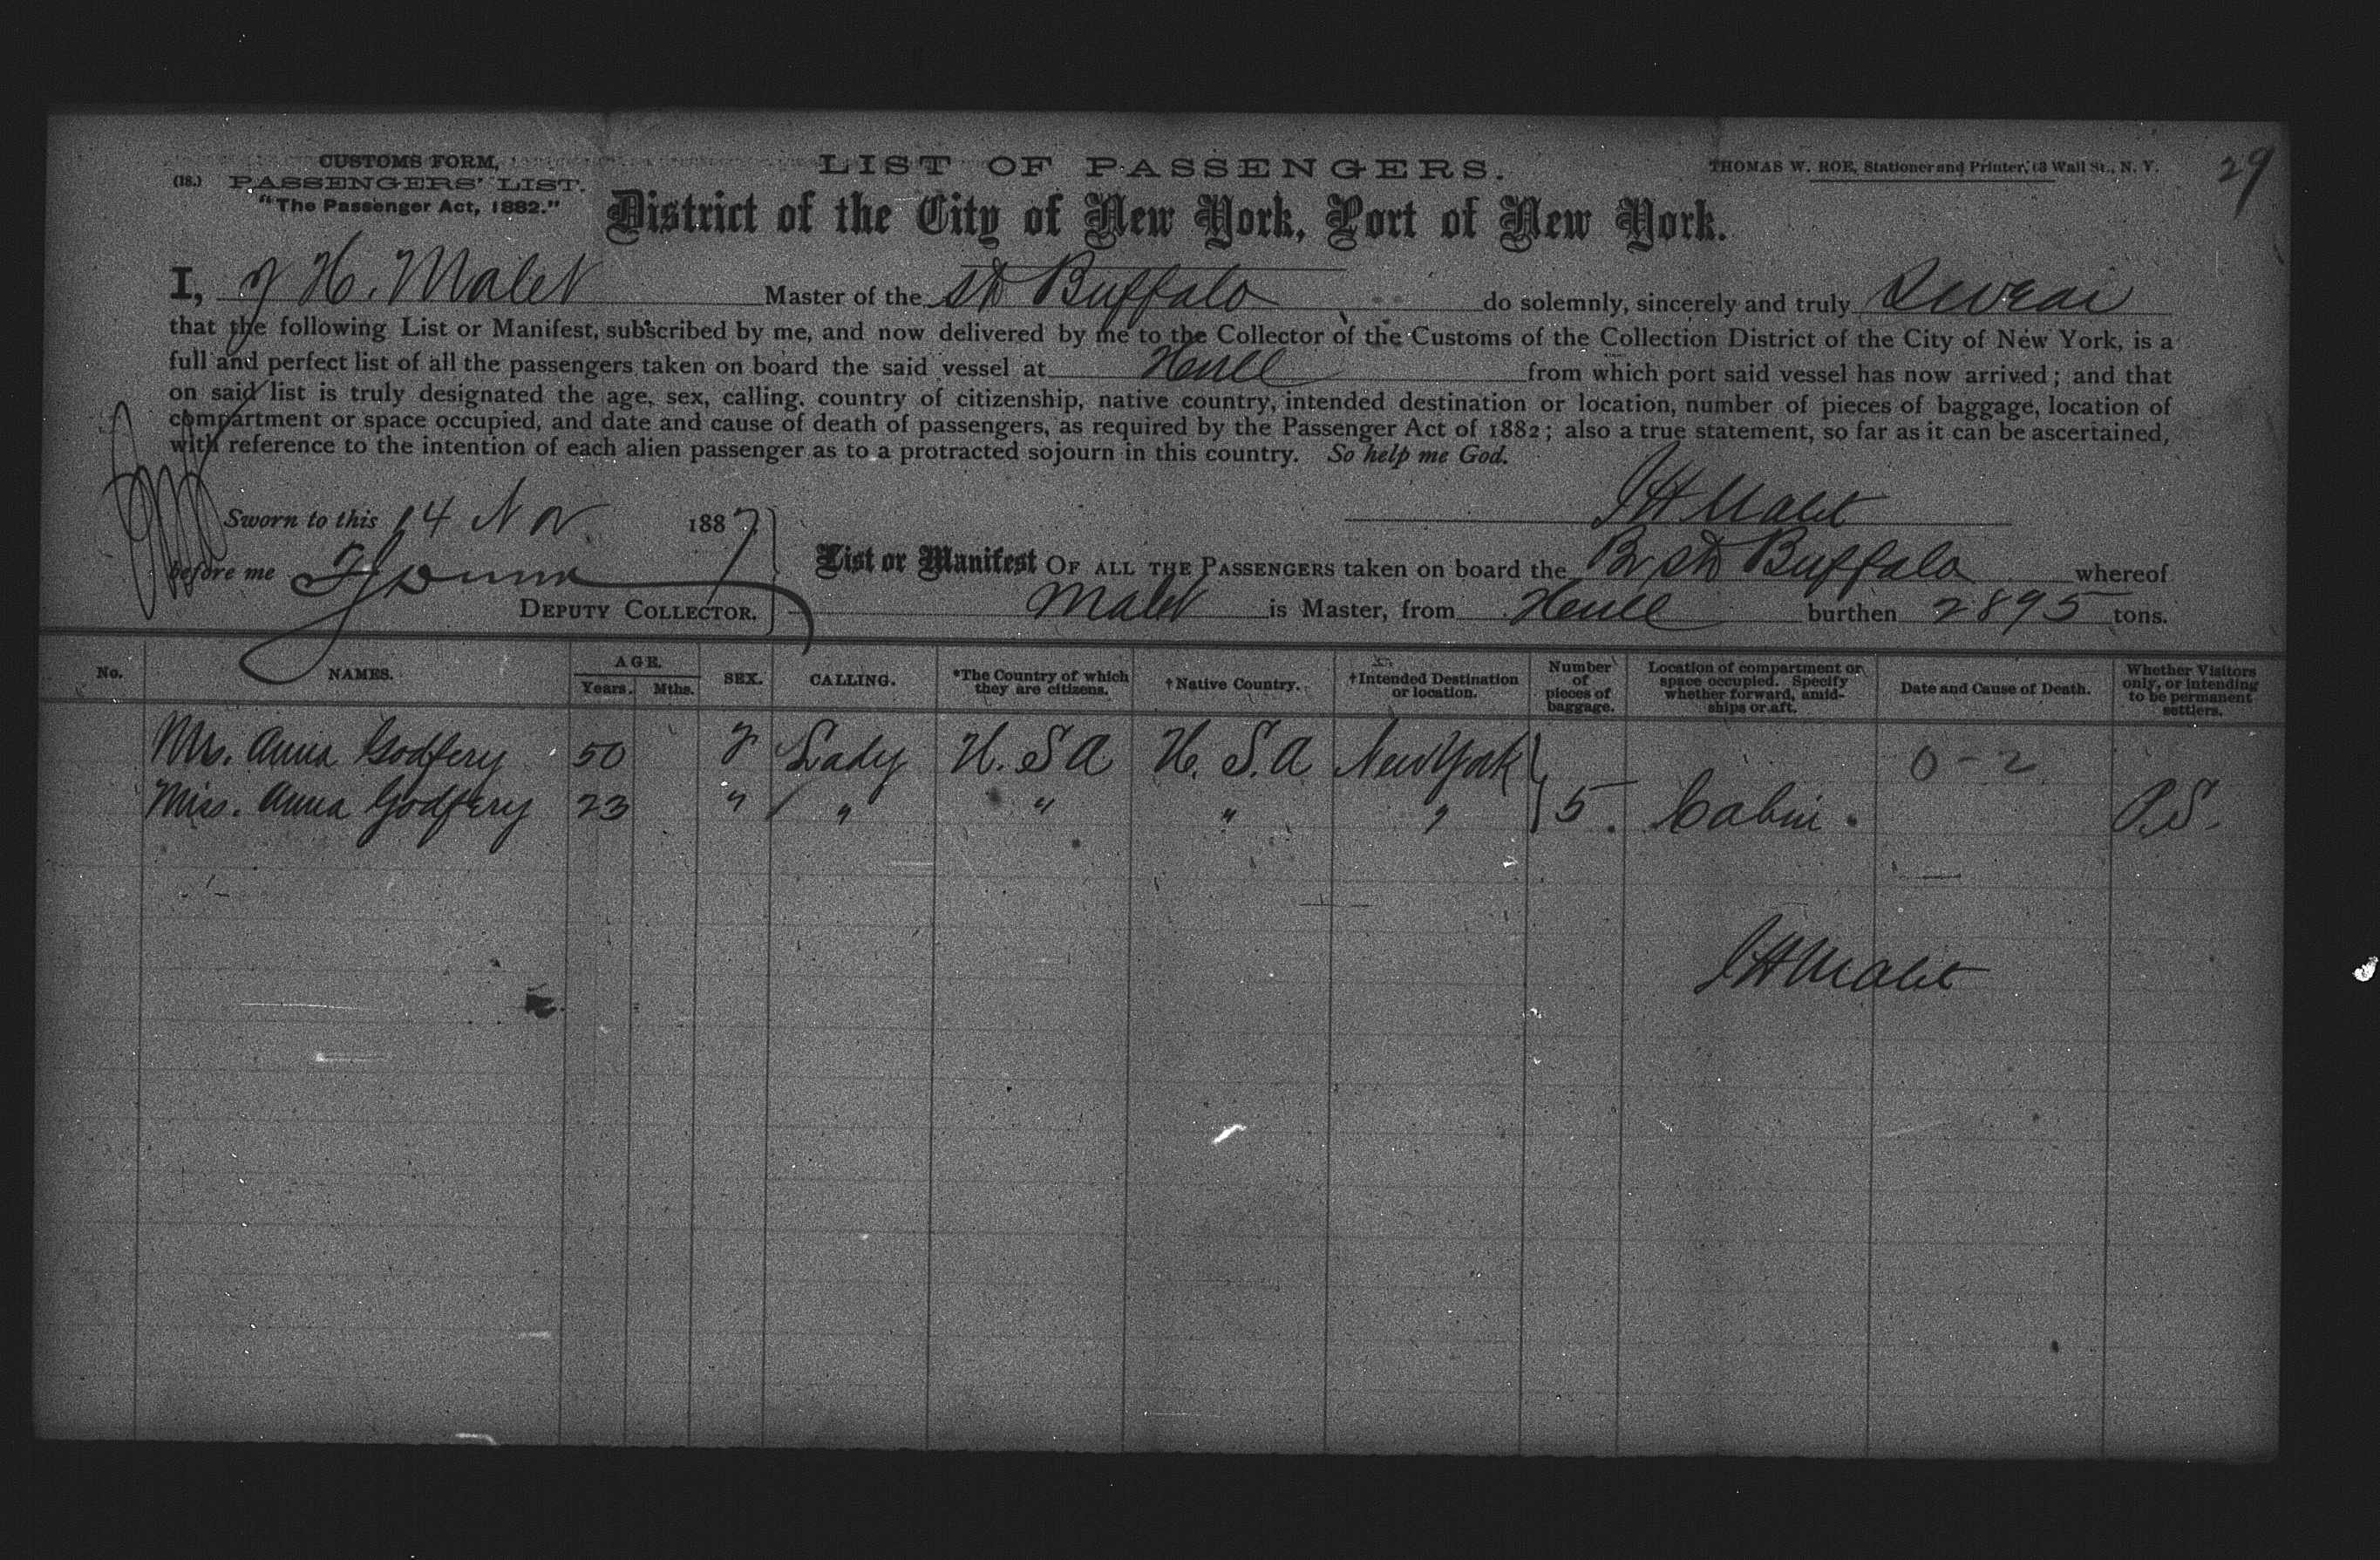 CUSTOMS FORM,
(18.) PASSENGERS' LIST.
"The Passenger Act, 1882."
LIST OF PASSENGERS.
THOMAS W. ROE, Stationer and Printer, 63 Wall St., N. Y.
29
District of the City of New York, Port of New York.
I, J H. Malet Master of the Str Buffalo do solemnly, sincerely and truly Swear
that the following List or Manifest, subscribed by me, and now delivered by me to the Collector of the Customs of the Collection District of the City of New York, is a
full and perfect list of all the passengers taken on board the said vessel at Hull from which port said vessel has now arrived; and that
on said list is truly designated the age, sex, calling, country of citizenship, native country, intended destination or location, number of pieces of baggage, location of
compartment or space occupied, and date and cause of death of passengers, as required by the Passenger Act of 1882; also a true statement, so far as it can be ascertained,
with reference to the intention of each alien passenger as to a protracted sojourn in this country. So help me God.
JH Malet
Sworn to this 14 Nov 1887
before me
DEPUTY COLLECTOR.
List or Manifest OF ALL THE PASSENGERS taken on board the Br Str Buffalo whereof
Malet is Master, from Hull burthen 2895 tons.
No. NAMES. AGE. Years. Mths. SEX. CALLING. *The Country of which they are citizens. †Native Country. †Intended Destination or location. Number of pieces of baggage. Location of compartment or space occupied. Specify whether forward, amidships or aft. Date and Cause of Death. Whether Visitors only, or intending to be permanent settlers.
Mrs. Anna Godfery 50 F Lady U. S A U. S. A New York 0-2
Miss. Anna Godfery 23 " " " " " 5. Cabin. P.S.
JH Malet